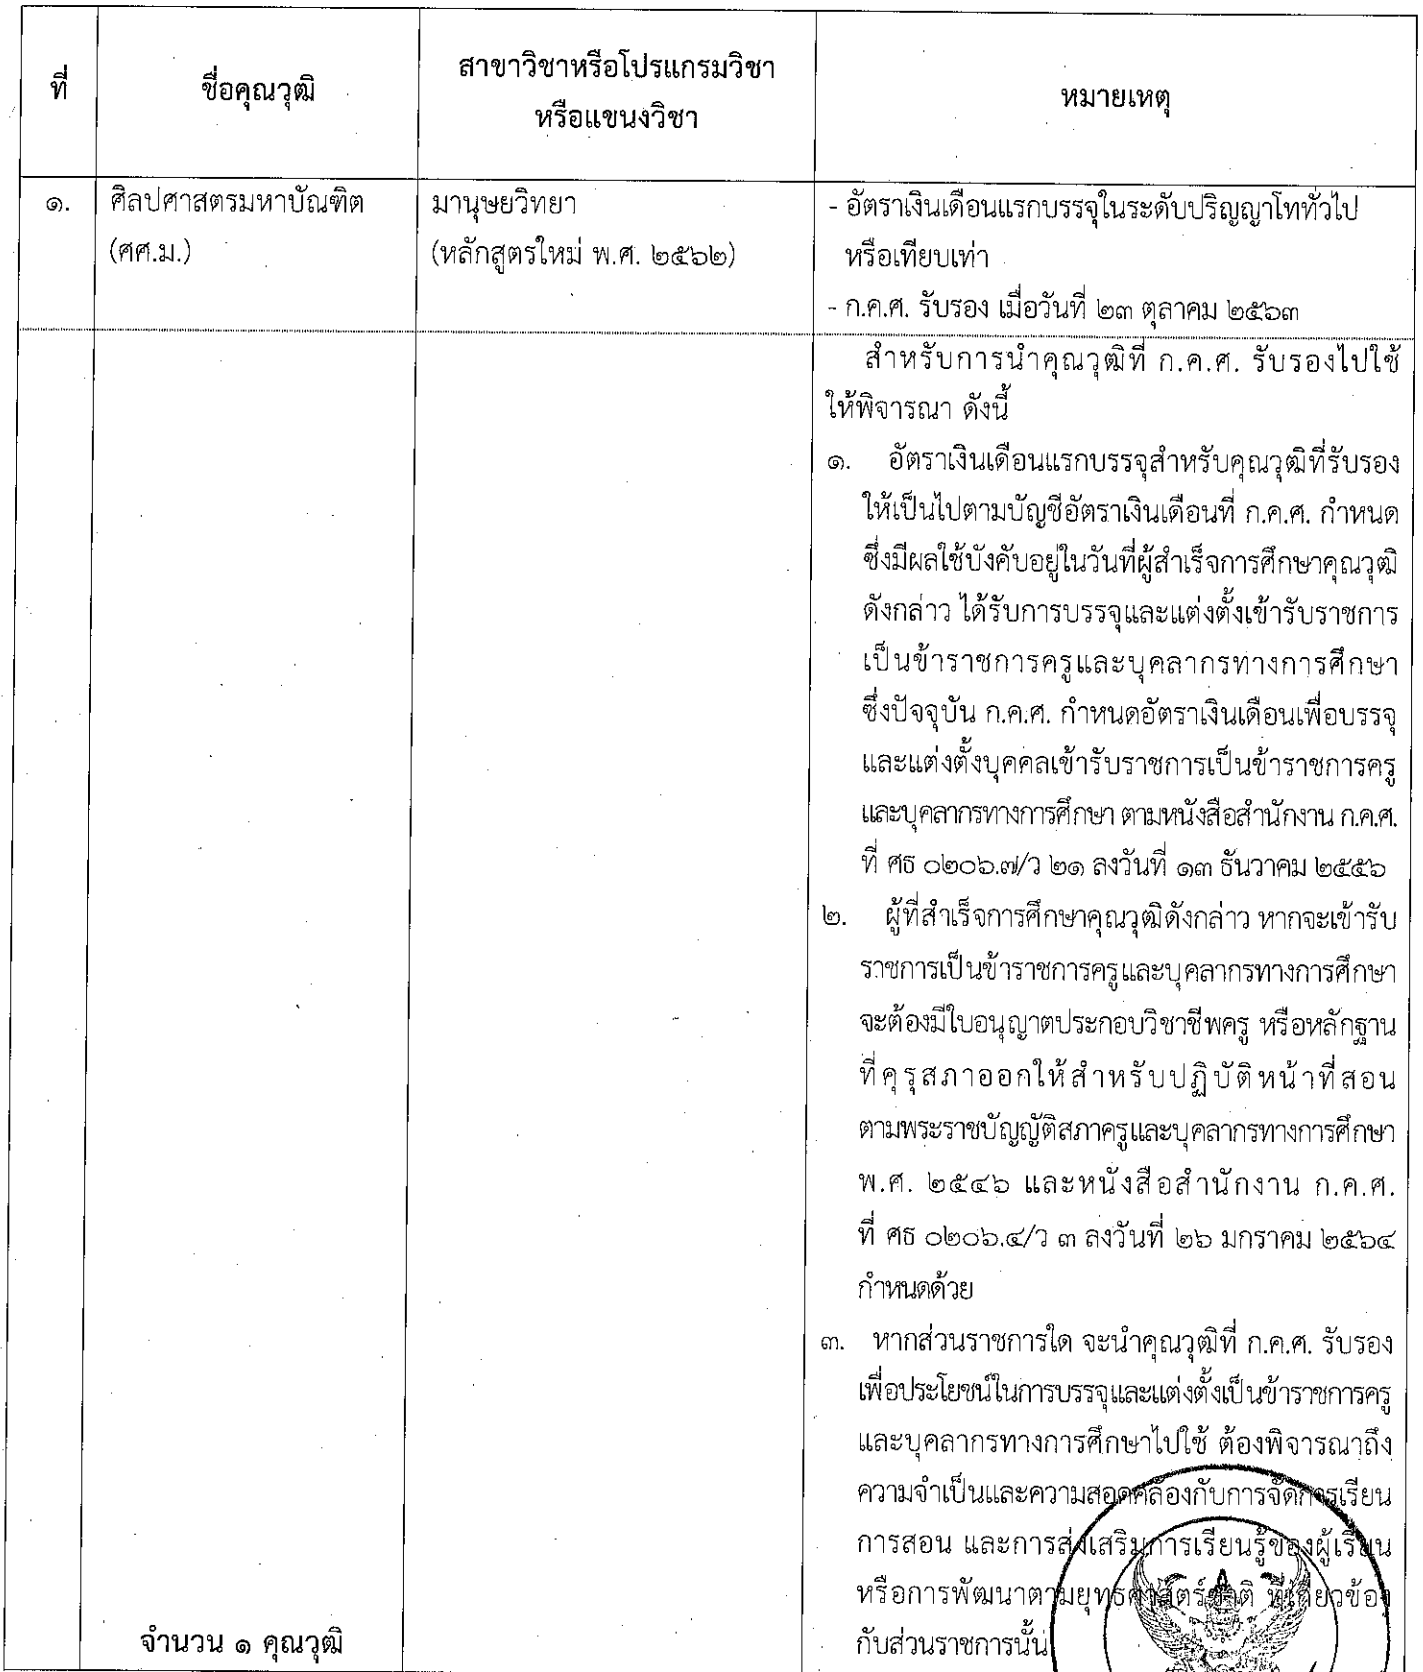 ที่
ชื่อคุณวุฒิ
สาขาวิชาหรือโปรแกรมวิชา
หรือแขนงวิชา
หมายเหตุ
๑.
ศิลปศาสตรมหาบัณฑิต
(ศศ.ม.)
มานุษยวิทยา
(หลักสูตรใหม่ พ.ศ. ๒๕๖๒)
- อัตราเงินเดือนแรกบรรจุในระดับปริญญาโททั่วไป
หรือเทียบเท่า
- ก.ค.ศ. รับรอง เมื่อวันที่ ๒๓ ตุลาคม ๒๕๖๓
สำหรับการนำคุณวุฒิที่ ก.ค.ศ. รับรองไปใช้
ให้พิจารณา ดังนี้
๑. อัตราเงินเดือนแรกบรรจุสำหรับคุณวุฒิที่รับรอง
ให้เป็นไปตามบัญชีอัตราเงินเดือนที่ ก.ค.ศ. กำหนด
ซึ่งมีผลใช้บังคับอยู่ในวันที่ผู้สำเร็จการศึกษาคุณวุฒิ
ดังกล่าว ได้รับการบรรจุและแต่งตั้งเข้ารับราชการ
เป็นข้าราชการครูและบุคลากรทางการศึกษา
ซึ่งปัจจุบัน ก.ค.ศ. กำหนดอัตราเงินเดือนเพื่อบรรจุ
และแต่งตั้งบุคคลเข้ารับราชการเป็นข้าราชการครู
และบุคลากรทางการศึกษา ตามหนังสือสำนักงาน ก.ค.ศ.
ที่ ศธ ๐๒๐๖.๗/ว ๒๑ ลงวันที่ ๑๓ ธันวาคม ๒๕๕๖
๒. ผู้ที่สำเร็จการศึกษาคุณวุฒิดังกล่าว หากจะเข้ารับ
ราชการเป็นข้าราชการครูและบุคลากรทางการศึกษา
จะต้องมีใบอนุญาตประกอบวิชาชีพครู หรือหลักฐาน
ที่คุรุสภาออกให้สำหรับปฏิบัติหน้าที่สอน
ตามพระราชบัญญัติสภาครูและบุคลากรทางการศึกษา
พ.ศ. ๒๕๔๖ และหนังสือสำนักงาน ก.ค.ศ.
ที่ ศธ ๐๒๐๖.๔/ว ๓ ลงวันที่ ๒๖ มกราคม ๒๕๖๔
กำหนดด้วย
๓. หากส่วนราชการใด จะนำคุณวุฒิที่ ก.ค.ศ. รับรอง
เพื่อประโยชน์ในการบรรจุและแต่งตั้งเป็นข้าราชการครู
และบุคลากรทางการศึกษาไปใช้ ต้องพิจารณาถึง
ความจำเป็นและความสอดคล้องกับการจัดการเรียน
การสอน และการส่งเสริมการเรียนรู้ของผู้เรียน
หรือการพัฒนาตามยุทธศาสตร์ชาติ ที่เกี่ยวข้อง
กับส่วนราชการนั้น
จำนวน ๑ คุณวุฒิ